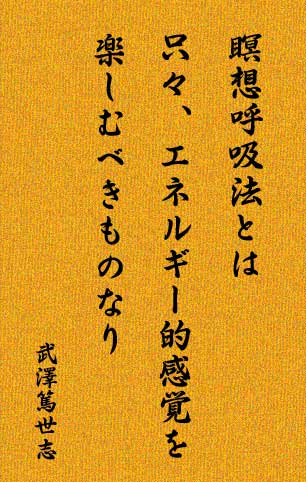 瞑想呼吸法とは
只々、エネルギー的感覚を
楽しむべきものなり
武澤篤世志